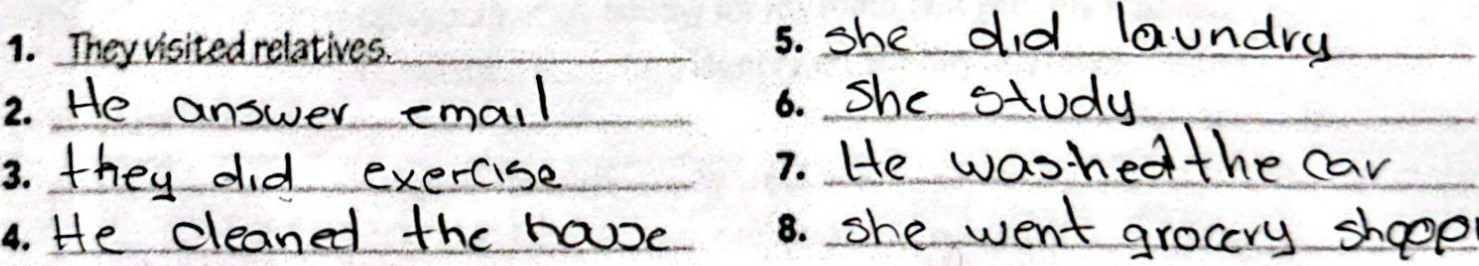 1. They visited relatives.
2. He answer email
3. they did exercise
4. He cleaned the house
5. she did laundry
6. She study
7. He washed the car
8. she went grocery shopp